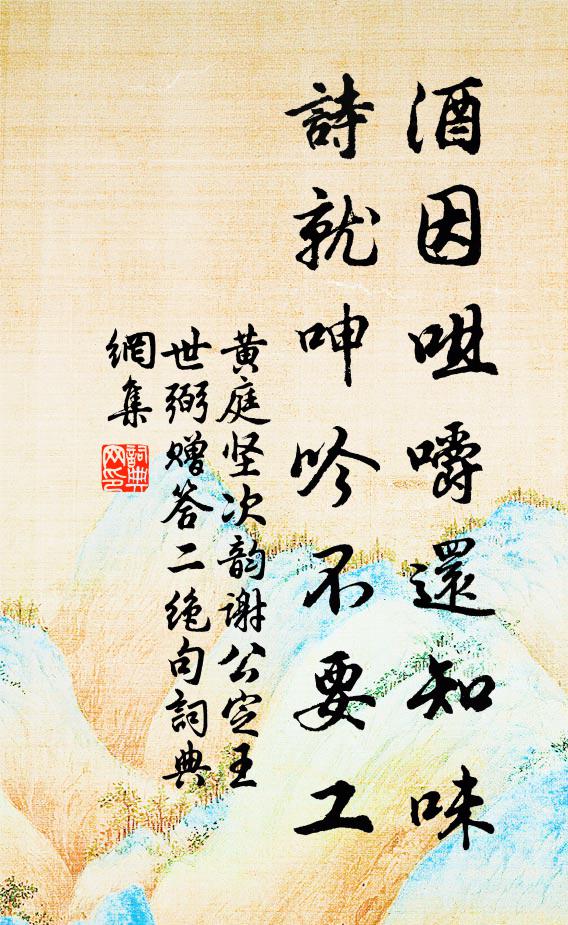 酒因咀嚼還知味
詩就呻吟不要工
黄庭坚次韵谢公定王
世弼赠答二绝句詞典
網集
詞典网印